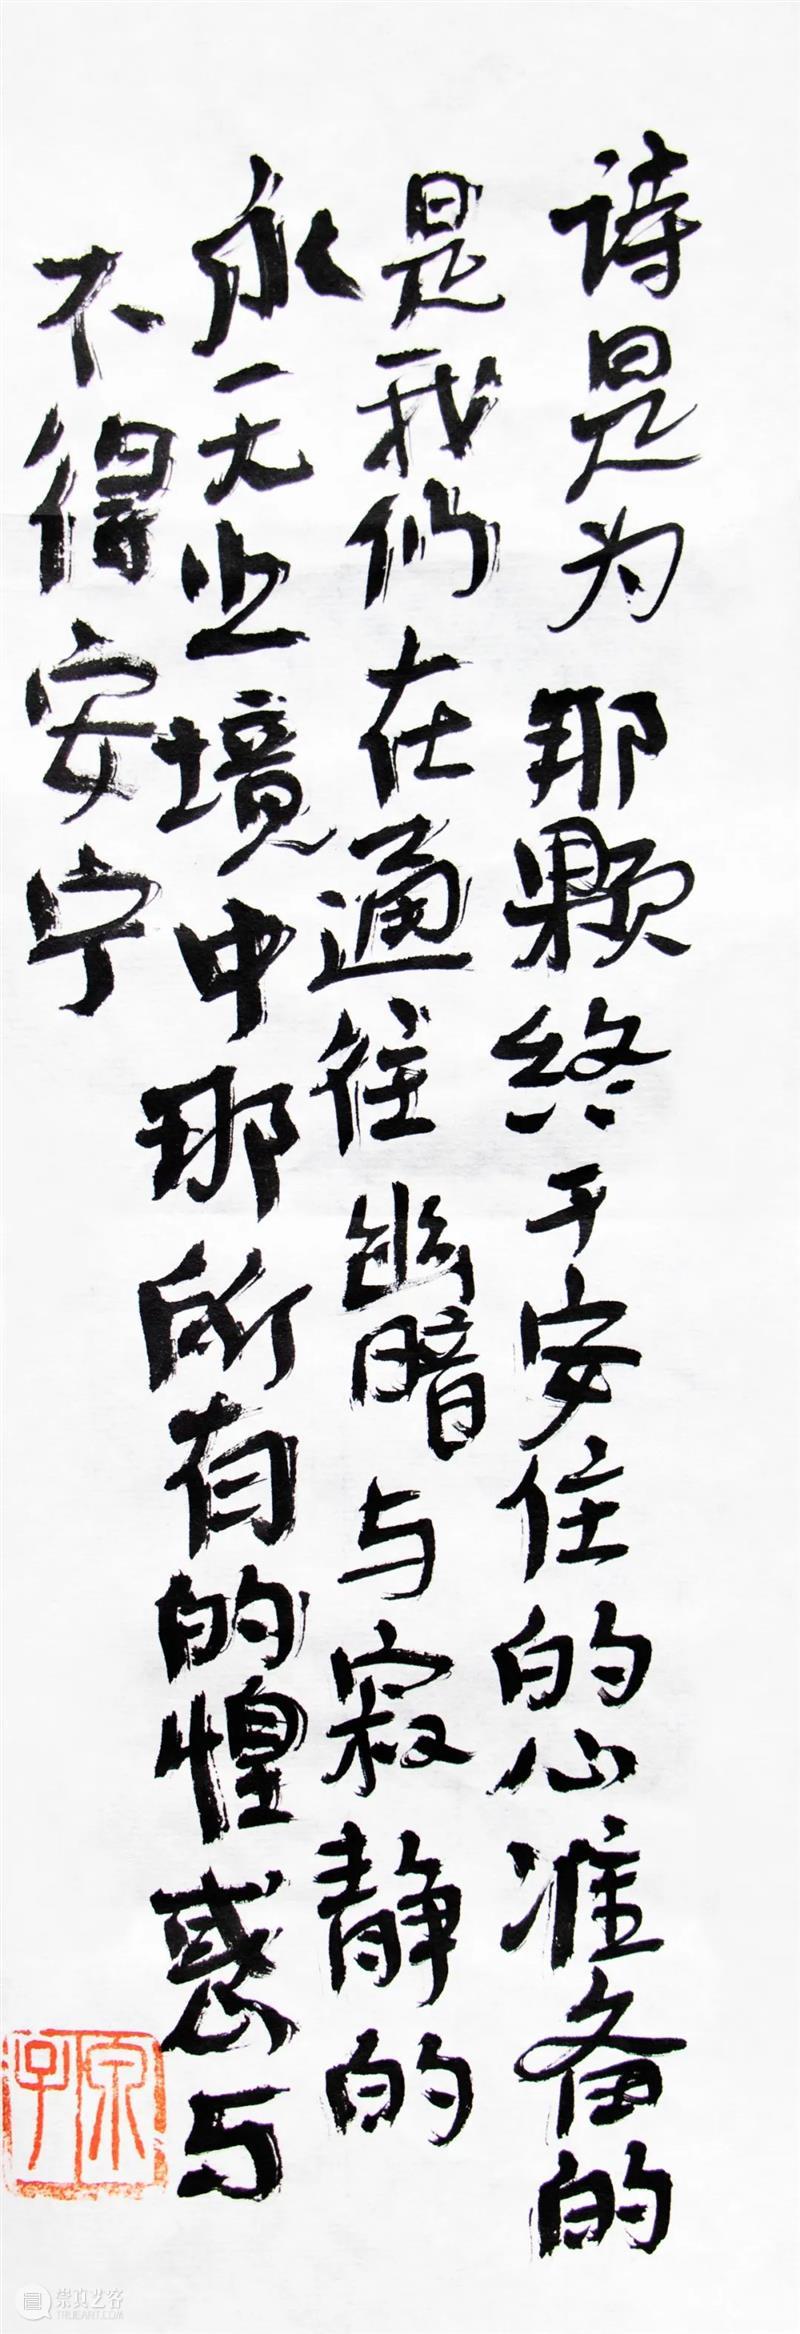 诗是为那颗终于安住的心准备的
是我们在通往幽暗与寂静的
永无止境中那所有的惶惑与
不得安宁
泉子
崇真艺客
TRUEART.COM